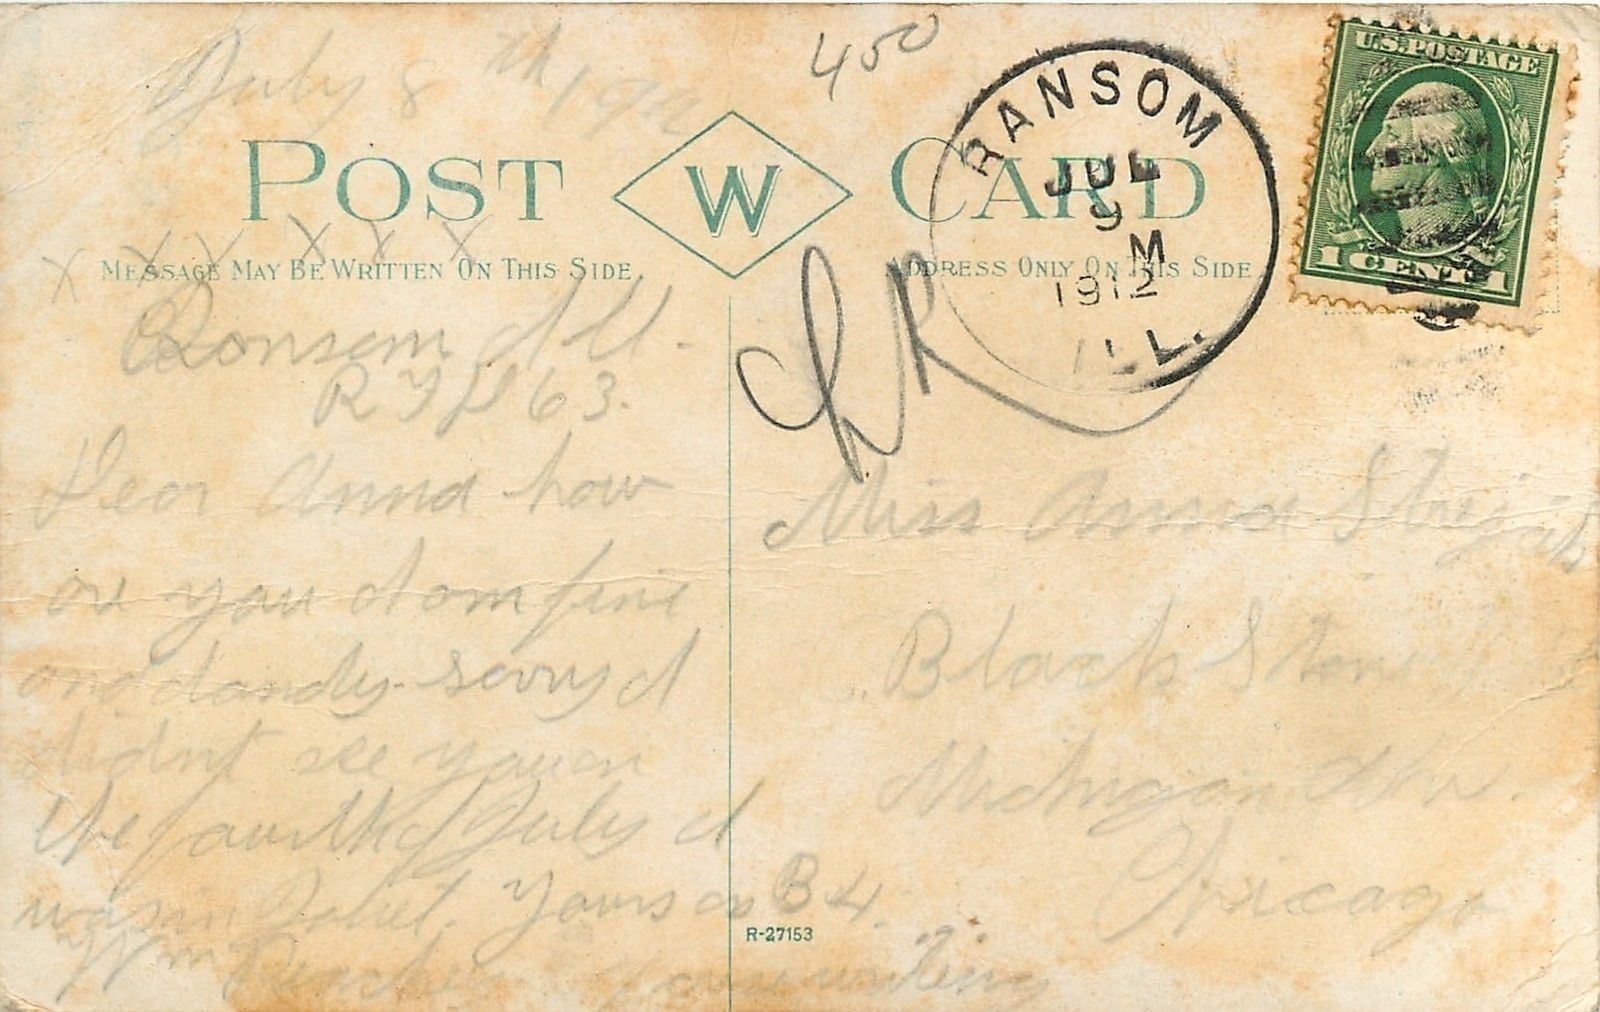 July 8th, 19
450
POST W CARD
X X X X X X
MESSAGE MAY BE WRITTEN ON THIS SIDE.
ADDRESS ONLY ON THIS SIDE
RANSOM
JUL
9
M
1912
ILL.
U.S. POSTAGE
1 CENT 1
Ransom Ill.
R F D 63.
Dear Anna how
are you I am fine
and dandy sorry I
didnt see you on
the fourth of July I
was in Joliet. Yours as B 4.
Wm
Miss Anna
Black Stone
Michigan Ave.
Chicago
R-27153